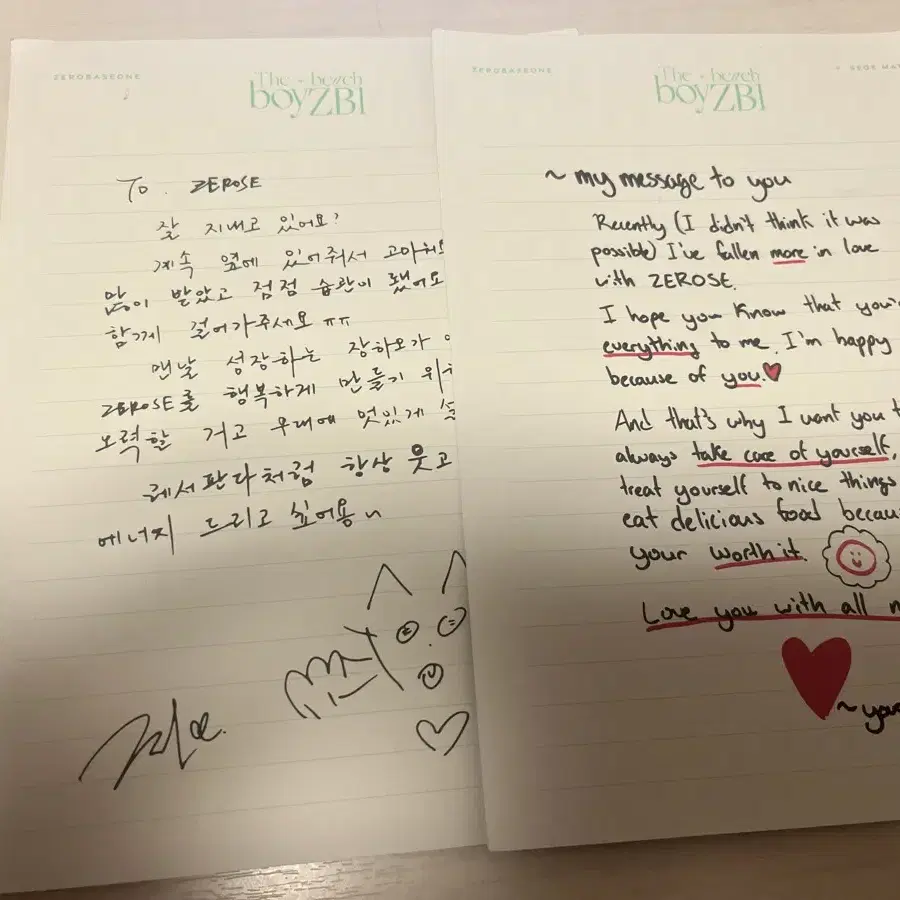 ZEROBASEONE
The beach
boyZB1
To. ZEROSE
잘 지내고 있어요?
계속 옆에 있어줘서 고마워요
많이 받았고 점점 습관이 됐어요
함께 걸어가주세요 ㅠㅠ
맨날 성장하는 장하오가
ZEROSE를 행복하게 만들기 위
노력할 거고 무대에 멋있게
레서판다처럼 항상 웃고
에너지 드리고 싶어용
ZEROBASEONE
The beach
boyZB1
~ my message to you
Recently (I didn't think it was
possible) I've fallen more in love
with ZEROSE.
I hope you know that you'
everything to me. I'm happy
because of you♥
And that's why I want you t
always take care of yourself,
treat yourself to nice things
eat delicious food becau
your worth it.
Love you with all m
~ you